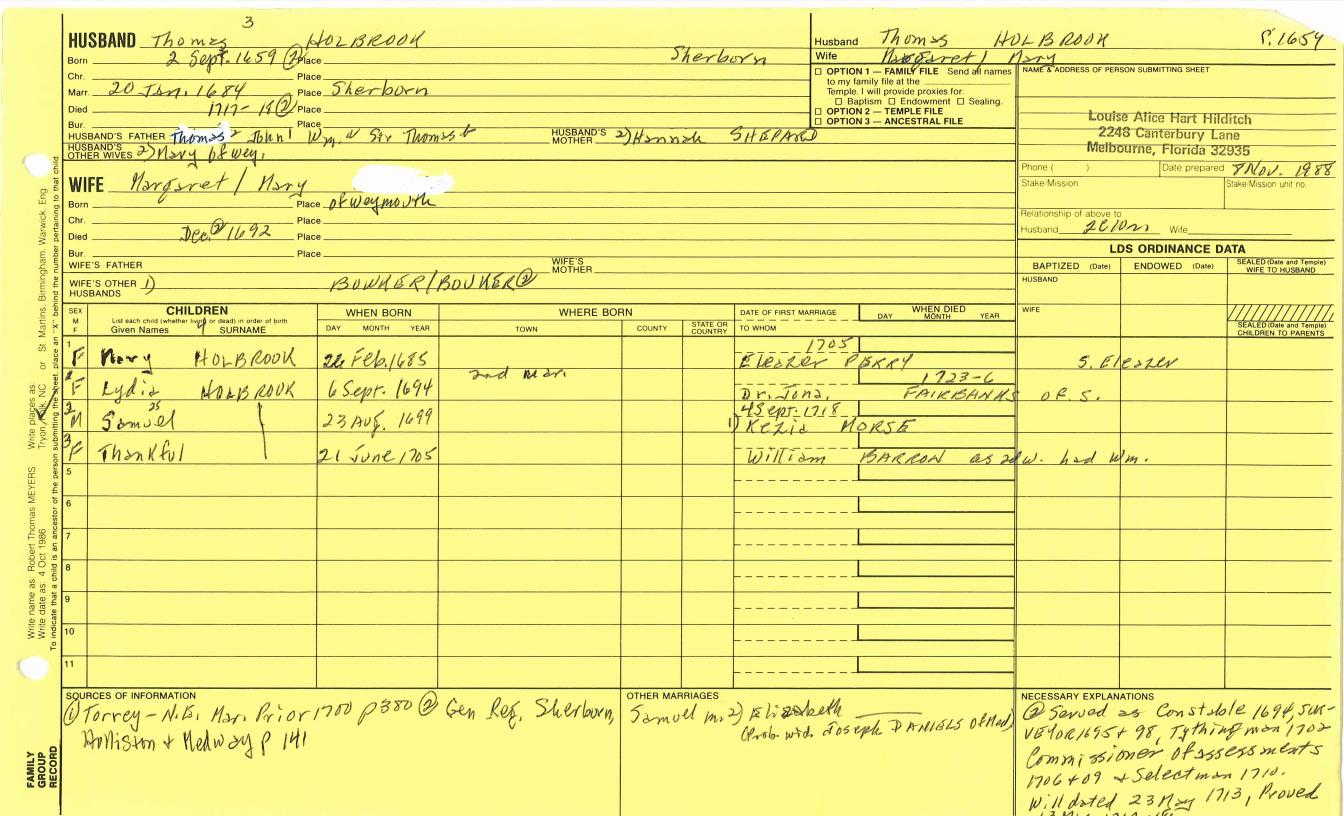 3
HUSBAND Thomas HOLBROOK
Born 2 Sept. 1659 ② Place Sherborn
Chr. Place
Marr. 20 Jan. 1684 Place Sherborn
Died 1717-18 ② Place
Bur. Place
HUSBAND'S FATHER Thomas² John¹ Wm. Sir Thomas HUSBAND'S MOTHER 2) Hannah SHEPARD
HUSBAND'S OTHER WIVES 2) Mary of Wey.
WIFE Margaret / Mary
Born Place of Weymouth
Chr. Place
Died Dec. ② 1692 Place
Bur. Place
WIFE'S FATHER WIFE'S MOTHER
WIFE'S OTHER HUSBANDS 1) BOWKER/BOUKER ②
Husband Thomas HOLBROOK P. 1659
Wife Margaret / Mary
☐ OPTION 1 — FAMILY FILE Send all names
to my family file at the
Temple. I will provide proxies for:
☐ Baptism ☐ Endowment ☐ Sealing.
☐ OPTION 2 — TEMPLE FILE
☐ OPTION 3 — ANCESTRAL FILE
NAME & ADDRESS OF PERSON SUBMITTING SHEET
Louise Alice Hart Hilditch
2248 Canterbury Lane
Melbourne, Florida 32935
Phone ( ) Date prepared 8 Nov. 1988
Stake-Mission Stake-Mission unit no.
Relationship of above to
Husband Wife
LDS ORDINANCE DATA
BAPTIZED (Date) ENDOWED (Date) SEALED (Date and Temple) WIFE TO HUSBAND
HUSBAND
WIFE
SEALED (Date and Temple) CHILDREN TO PARENTS
SEX M F
CHILDREN
List each child (whether living or dead) in order of birth
Given Names SURNAME
WHEN BORN
DAY MONTH YEAR
WHERE BORN
TOWN COUNTY STATE OR COUNTRY
DATE OF FIRST MARRIAGE
TO WHOM
WHEN DIED
DAY MONTH YEAR
1 F Mary HOLBROOK Feb. 1685 1705 Eleazer PERRY S. Eleazer
2nd mar.
F Lydia HOLBROOK 6 Sept. 1694 1723-6 Dr. Jona. FAIRBANKS OF S.
2 M Samuel 23 Aug. 1699 4 Sept. 1718 1) Kezia MORSE
3 F Thankful 21 June 1705 William BARRON as 2d w. had Wm.
5
6
7
8
9
10
11
SOURCES OF INFORMATION
① Torrey - N.E. Mar. Prior 1700 p 380 ② Gen Reg. Sherborn,
Holliston + Medway p 141
OTHER MARRIAGES
Samuel m. 2) Elizabeth
(Prob. wid. Joseph DANIELS of Med.)
NECESSARY EXPLANATIONS
② Served as Constable 1694, SUR-
VEYOR 1695 + 98, Tything man 1702
Commissioner of assessments
1706 + 09 + Selectman 1710.
Will dated 23 May 1713, Proved
Write name as: Robert Thomas MEYERS Write places as: Tryon, Polk, NC or St Martins, Birmingham, Warwick, Eng
Write date as: 4 Oct 1986
To indicate that a child is an ancestor of the person submitting the sheet, place an "X" behind the number pertaining to that child
FAMILY
GROUP
RECORD